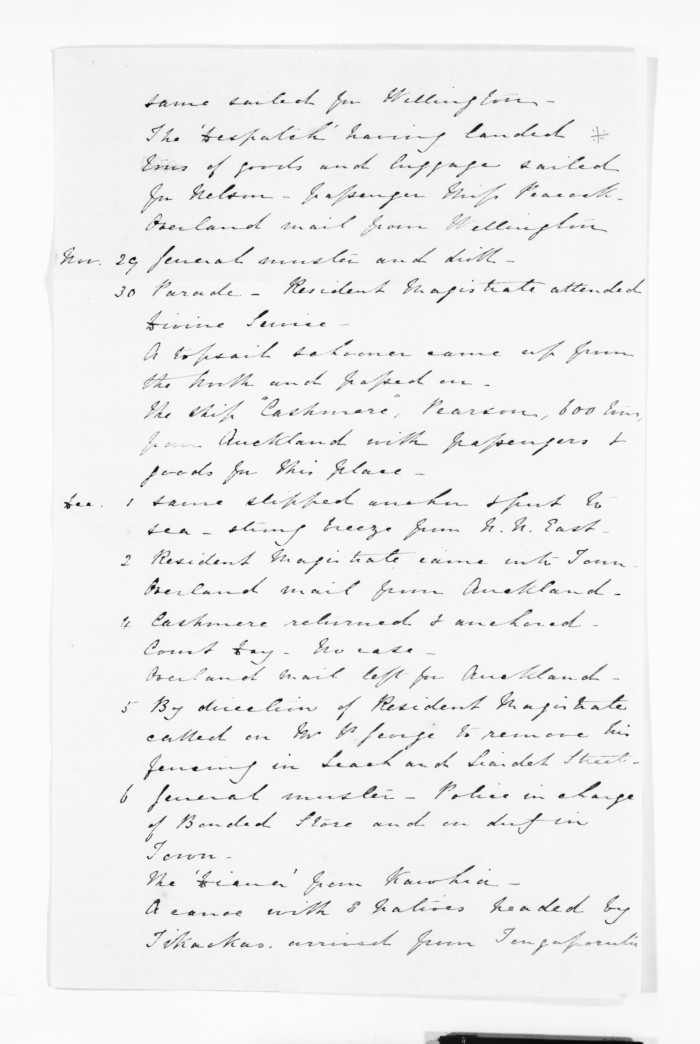 same sailed for Wellington -
The 'Despatch' having landed #
Tons of goods and luggage sailed
for Nelson - passenger Miss Peacock.
Overland mail from Wellington
Nov. 29 General muster and drill -
30 Parade - Resident Magistrate attended
Divine Service -
A topsail schooner came up from
the North and passed on -
The ship "Cashmere", Pearson, 600 Tons,
from Auckland with passengers &
goods for this place -
Dec. 1 same slipped anchor & put to
sea - strong breeze from N. N. East -
2 Resident Magistrate came into Town -
Overland mail from Auckland -
4 Cashmere returned & anchored -
Court Day - No case -
Overland mail left for Auckland -
5 By direction of Resident Magistrate
called on Mr St George to remove his
fencing in Leach and Liardet Streets -
6 General muster - Police in charge
of Bonded Store and on duty in
Town -
The 'Diana' from Kawhia -
A canoe with 8 Natives headed by
Tikaokao. arrived from Tongaporutu